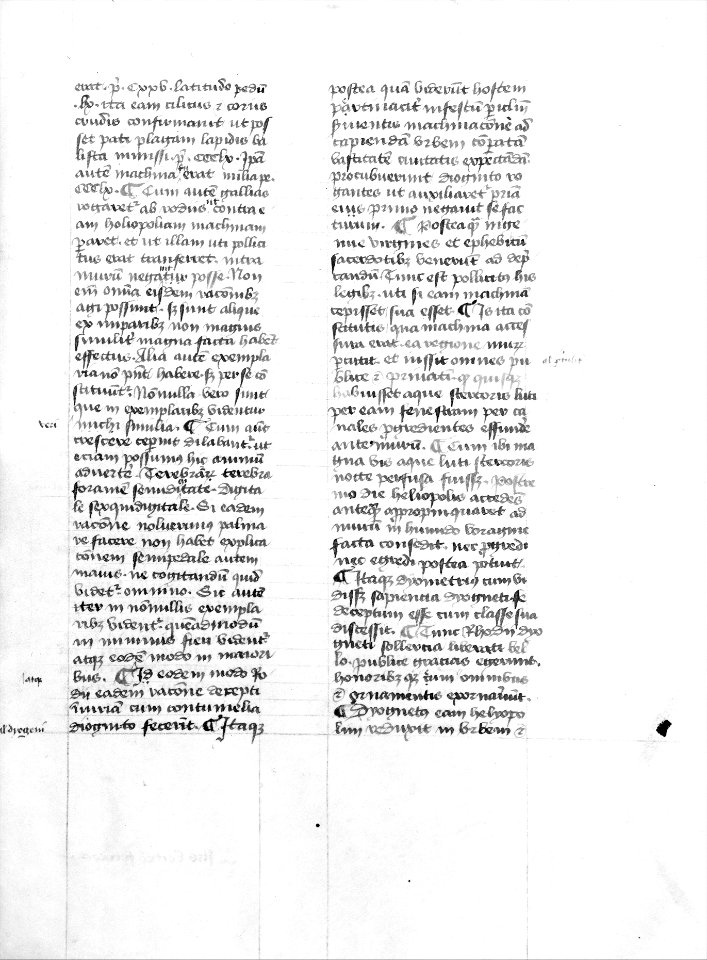 erat . p̄. Cxxv . latitudo pedū
.lx. ita eam cilicus ⁊ corus
crudis confirmauit ut pos
set pati plagam lapidis ba
lista missi . p̄. CCClx . Ip̄a
autē machina erat milia pe.
CCClx . ¶ Cum autē gallias
rogaret᷑ ab rodiis ut contra e
am holiopoliam machinam
ꝑaret . et ut illam uti pollici
tus erat tranferret . intra
murū negauit posse . Non
em̄ om̄ia eisdem racōnibꝫ
agi possunt . sꝫ sunt alique
ex imparibꝫ non magnis
similit᷑ magna facta habet
effectus . Alia autē exempla
ria nō pn̄t habere . sꝫ per se cō
stituunt᷑ . Nōnulla vero sunt
que in exemplaribꝫ videntur
michi similia . ¶ Cum aūt
crescere ceperint dilabant᷑ . ut
eciam possumus hic animū
aduertē . Terebrat᷑ terebra
foramē semiditate . digita
le sexquidigitale . Si eadem
racōne noluerimus palma
re facere non habet explica
cōnem semipedale autem
maius . ne cogitandū quid
videt᷑ omnino . Sic autē
iter in nōnullis exempla
ribꝫ vident᷑ . queadmodū
in minimis fieri vident᷑
atqꝫ eodē modo in maiori
bus . ¶ Id eodem modo Ro
dii eadem racōne decepti
iniuriam cum contumelia
diognito fecert̄ . ¶ Itaqꝫ
postea quā viderūt hostem
ꝑtinacit᷑ infestū ꝑiclm̄
ẜuientis machinacōnē ad
capiendā vrbem cōꝑatam
vastitatē ciuitatis expectādā
procubuerunt diognito ro
gantes ut auxiliaret᷑ pr̄iā
eius primo negauit se fac
turum . ¶ Postea qꝫ inge
nue virgines et ephebicū
sacerdotibꝫ venerūt ad dep̄
candū Tunc est pollicitꝰ his
legibꝫ . uti si eam machinā
cepisset sua esset . ¶ Is ita cō
stitutis qua machina acces
sura erat . ea regione murꝝ
ꝑtutit . et iussit omnes pu
blice ⁊ priuatī . qꝫ quisqꝫ
habuisset aque stercoris luti
per eam fenestram per ca
nales ꝓgredientes effundē
ante murū . ¶ Cum ibi ma
gna vis aque luti stercoris
nocte pfusa fuissꝫ . Poste
ro die heliopolis accedēs
anteqꝫ appropinquaret ad
murū in humido voragine
facta consedit . nec ꝓgredi
nec egredi postea potuit .
¶ Itaqꝫ dymetrius cum vi
dissꝫ sapiencia dyogneti se
deceptum esse cum classe sua
discessit . ¶ Tunc Rhodii dyo
gneti sollercia liberati bel
lo . publice gracias egerunt .
honoribꝫ qꝫ eum omnibus
⁊ ornamentis exornauūt .
¶ Dyognetꝰ eam helyopo
lim reduxit in vrbem ⁊
veri